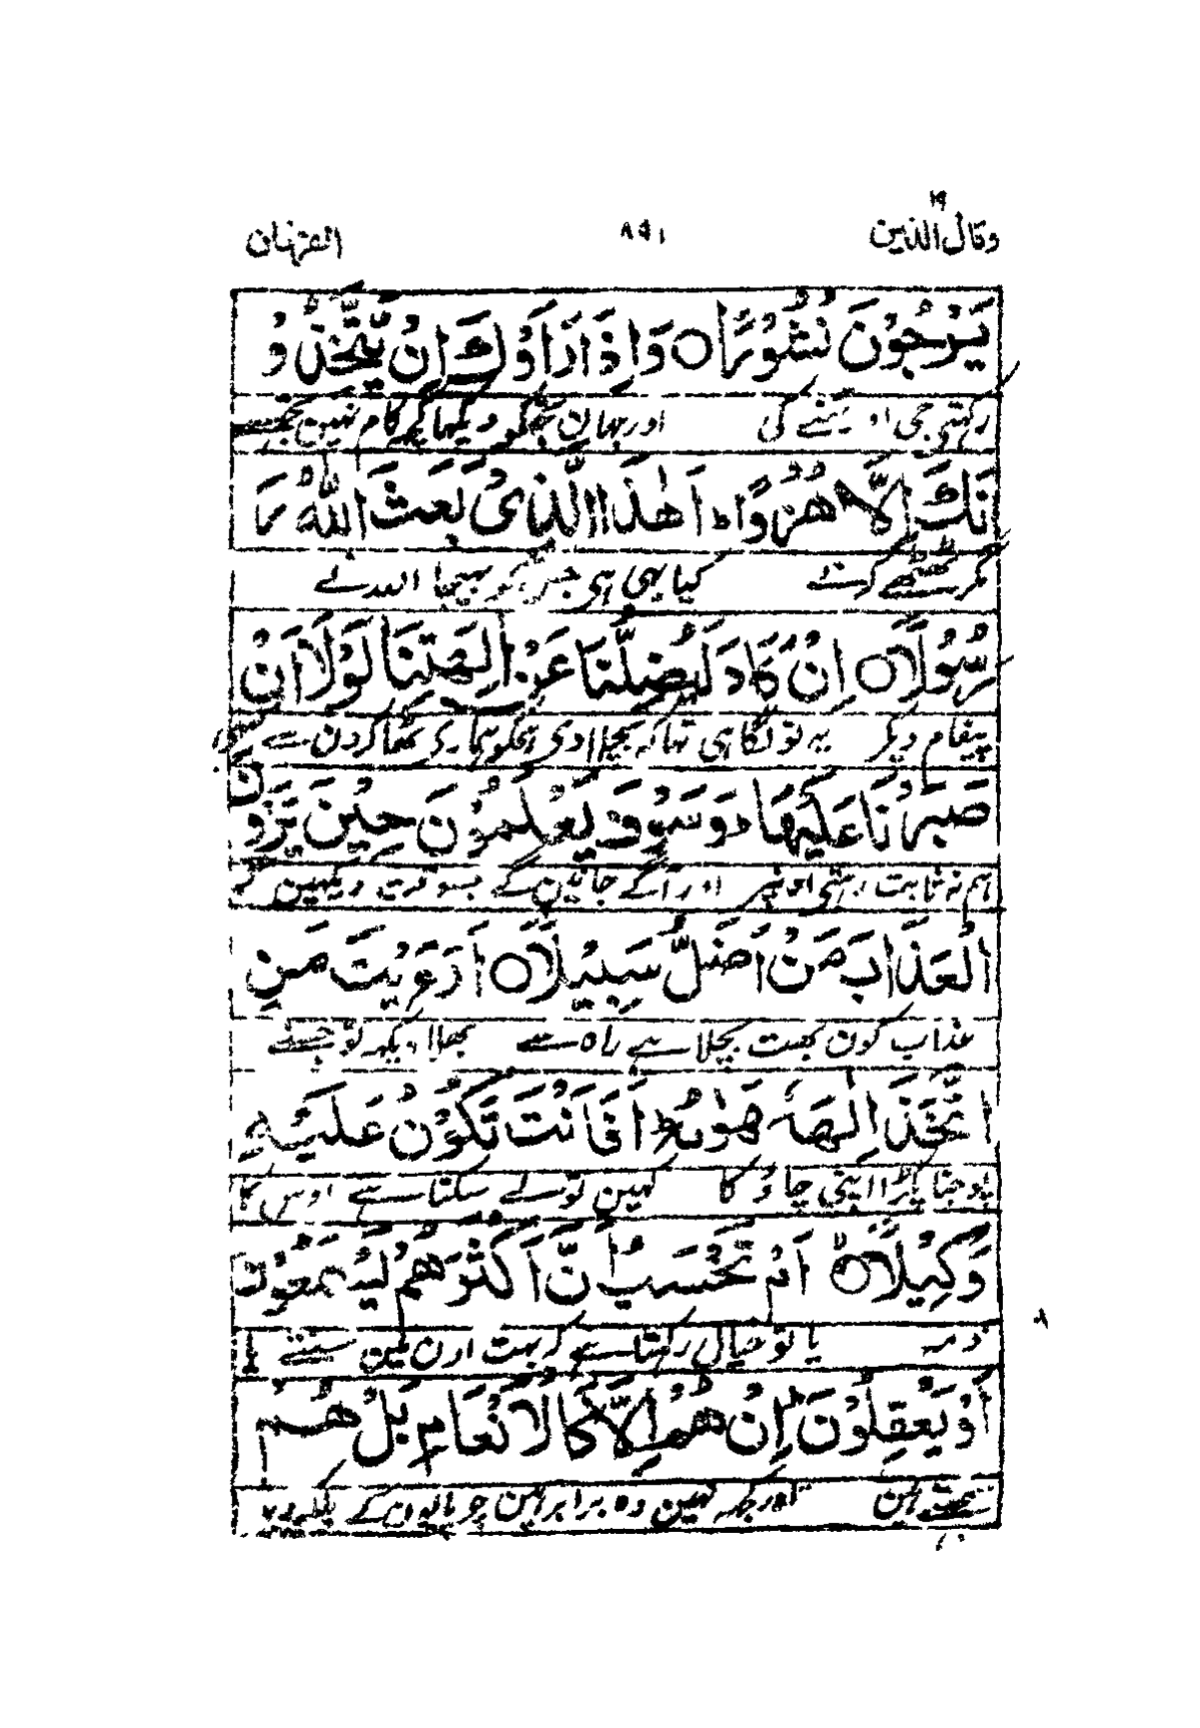 وقال الذین ١٩ ٨٥١ الفرقان
یَرْجُوْنَ نُشُوْرًا ○ وَاِذَا رَاَوْكَ اِنْ یَّتَّخِذُوْ
رکہتی جی اوٹہنے کی اور جہان تجھکو دیکہا کچھ کام نہین تجھسے
نَكَ اِلَّا هُزُوًا ط اَهٰذَا الَّذِیْ بَعَثَ اللّٰهُ رَ
مگر ٹھٹھے کرنے کیا یہی ہی جسکو بہیجا اللہ نے
سُوْلًا ○ اِنْ كَادَ لَیُضِلُّنَا عَنْ اٰلِهَتِنَا لَوْلَا اَنْ
پیغام دیکر یہ تو لگا ہی تہا کہ بچلا دی ہمکو ہماری ٹھاکردن سے کبھی
صَبَرْنَا عَلَیْهَا ط وَسَوْفَ یَعْلَمُوْنَ حِیْنَ یَرَوْنَ
ہم نہ ثابت رہتی اونپر اور آگے جانین گے جسوقت دیکہین گے
الْعَذَابَ مَنْ اَضَلُّ سَبِیْلًا ○ اَرَءَیْتَ مَنِ
عذاب کون بہت بچلا ہے راہ سے بھلا دیکہہ تو جسنے
اتَّخَذَ اِلٰهَهٗ هَوٰىهُ ط اَفَاَنْتَ تَكُوْنُ عَلَیْهِ
پوجنا پکڑا اپنی چاؤ کا کہین تو لے سکتا ہے اوس کا
وَكِیْلًا ○ اَمْ تَحْسَبُ اَنَّ اَكْثَرَهُمْ یَسْمَعُوْنَ
ذمہ یا تو خیال رکہتا ہے کہ بہت اون مین سنتے یا
اَوْ یَعْقِلُوْنَ ط اِنْ هُمْ اِلَّا كَالْاَنْعَامِ بَلْ هُمْ
سمجھتے ہین اور کچھ نہین وہ برابر ہین چوپایون کے بلکہ وے